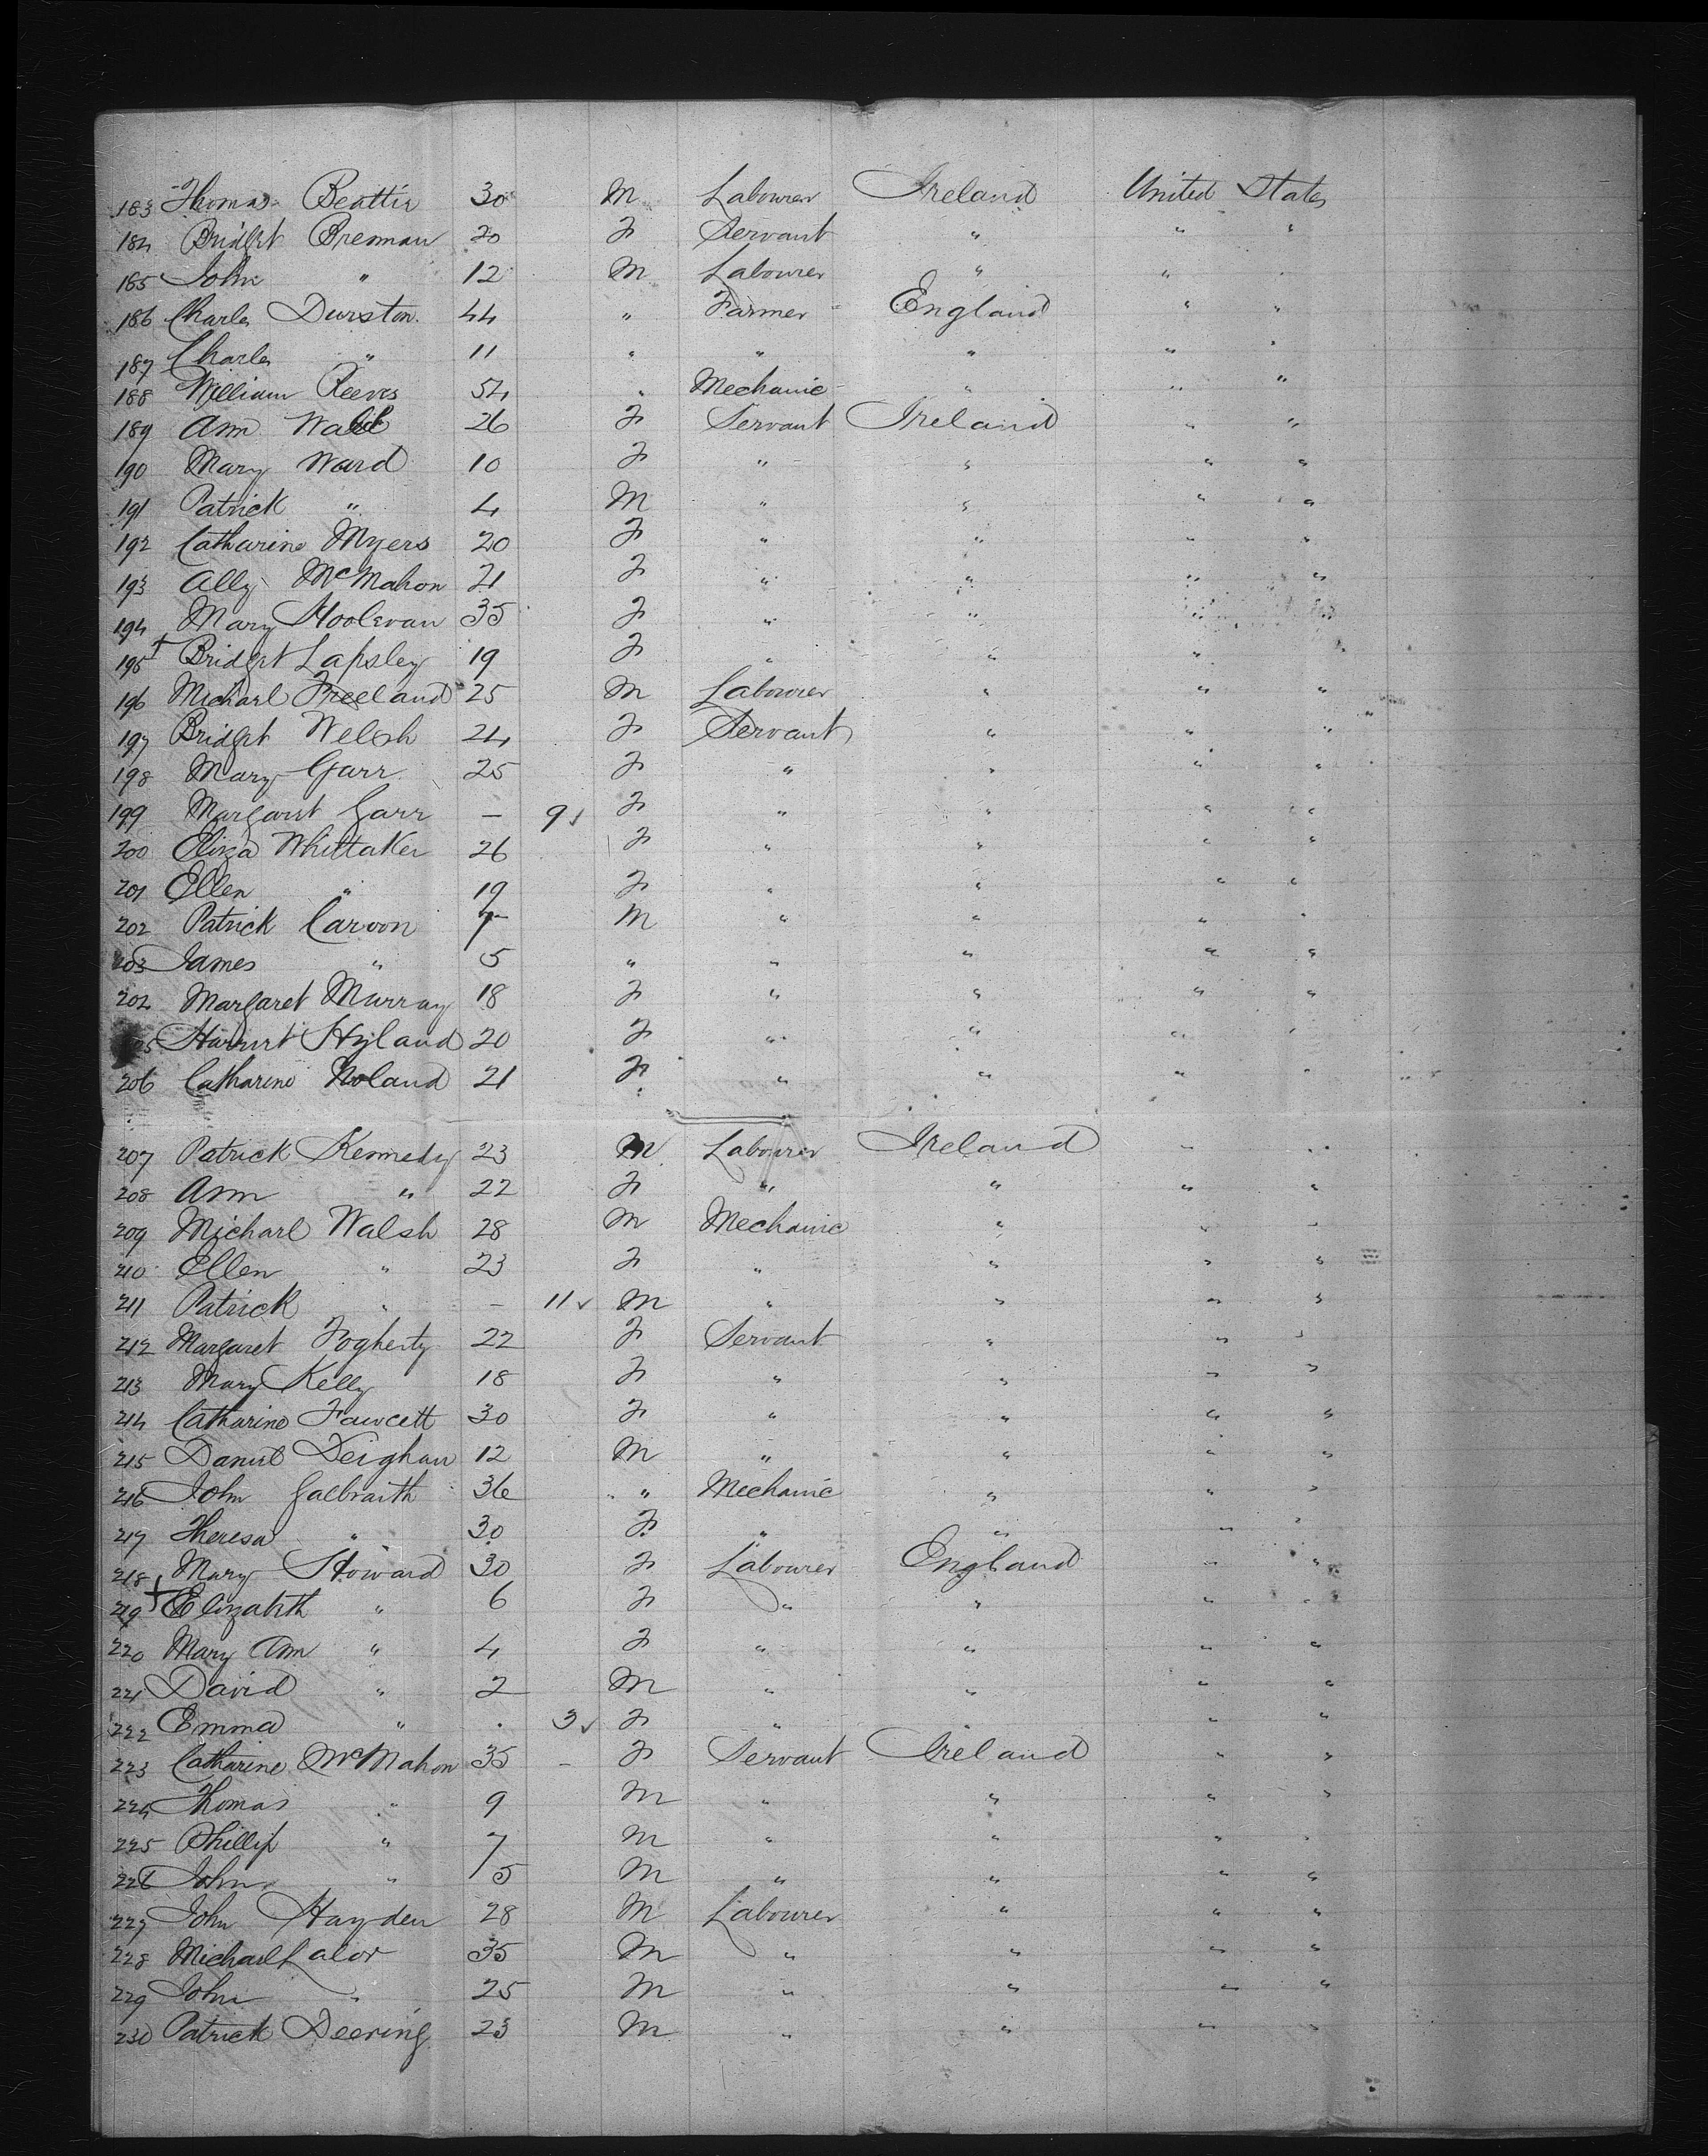 183 Thomas Beattie 30 M Labourer Ireland United States
184 Bridget Brennan 20 F Servant " " "
185 John " 12 M Labourer " "
186 Charles Durston 44 " Farmer England " "
187 Charles " 11 " " " " "
188 William Reeves 54 " Mechanic " " "
189 Ann 26 F Servant Ireland " "
190 Mary Ward 10 F " " " "
191 Patrick " 4 M " " " "
192 Catharine Myers 20 F " " " "
193 Ally McMahon 21 F " " " "
194 Mary Hoolevan 35 F " " " "
195 + Bridget Lapsley 19 F " " "
196 Michael Freeland 25 M Labourer " " "
197 Bridget Welsh 24 F Servant " " "
198 Mary Garr 25 F " " " "
199 Margaret Garr – 9 ✓ F " " " "
200 Eliza Whittaker 26 F " " " "
201 Ellen " 19 F " " " "
202 Patrick Caroon 7 M " " " "
203 James " 5 " " " " "
204 Margaret Murray 18 F " " " "
205 Harriet Hyland 20 F " " " "
206 Catharine Noland 21 F " " " "
207 Patrick Kennedy 23 M Labourer Ireland " "
208 Ann " 22 F " " " "
209 Michael Walsh 28 M Mechanic " " "
210 Ellen " 23 F " " " "
211 Patrick " – 11 ✓ M " " " "
212 Margaret Fogherty 22 F Servant " " "
213 Mary Kelly 18 F " " " "
214 Catharine Fawcett 30 F " " " "
215 Daniel Deighan 12 M " " " "
216 John Galbraith 36 " Mechanic " " "
217 Theresa " 30 F " " " "
218 Mary Howard 30 F Labourer England " "
219 + Elizabeth " 6 F " " " "
220 Mary Ann " 4 F " " " "
221 David " 2 M " " " "
222 Emma " . 3 ✓ F " " " "
223 Catharine McMahon 35 – F Servant Ireland " "
224 Thomas " 9 M " " " "
225 Phillip " 7 M " " " "
226 John " 5 M " " " "
227 John Hayden 28 M Labourer " " "
228 Michael Lalor 35 M " " " "
229 John " 25 M " " " "
230 Patrick Deering 23 M " " " "